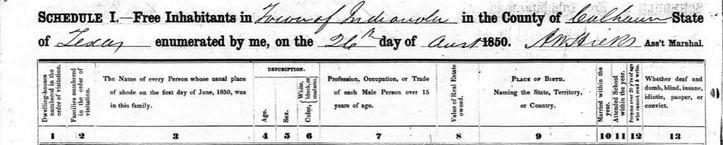 SCHEDULE I.—Free Inhabitants in Town of Indianola in the County of Calhoun State
of Texas enumerated by me, on the 26th day of Augst 1850. Ass't Marshal.
Dwelling-houses numbered in the order of visitation.
Families numbered in the order of visitation.
The Name of every Person whose usual place of abode on the first day of June, 1850, was in this family.
DESCRIPTION.
Age.
Sex.
Color, { White, black, or mulatto.
Profession, Occupation, or Trade of each Male Person over 15 years of age.
Value of Real Estate owned.
PLACE OF BIRTH. Naming the State, Territory, or Country.
Married within the year.
Attended School within the year.
Persons over 20 y'rs of age who cannot read & write.
Whether deaf and dumb, blind, insane, idiotic, pauper, or convict.
1 2 3 4 5 6 7 8 9 10 11 12 13